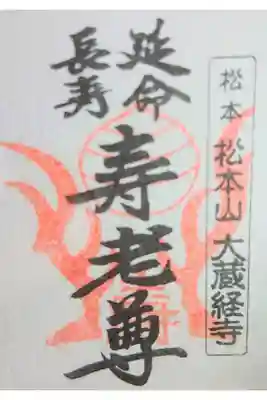 延命
長寿
寿老尊
松本 松本山 大蔵経寺